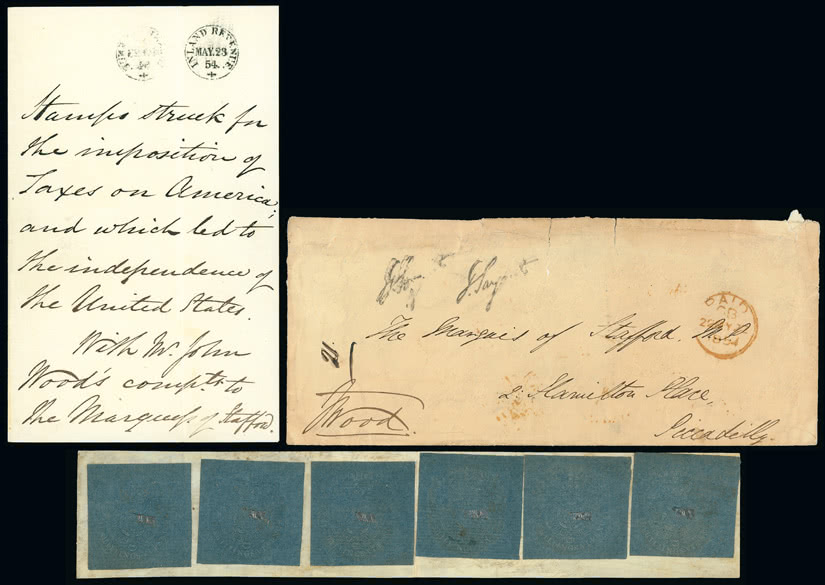 INLAND REVENUE
MAY.23
54.
Stamps struck for
the imposition of
Taxes on America;
and which led to
the independence of
the United States.
With Mr. John
Wood's compts. to
the Marquess of Stafford.
PAID
1854
The Marquis of Stafford. M.P.
2. Hamilton Place,
Piccadilly.
JWood.